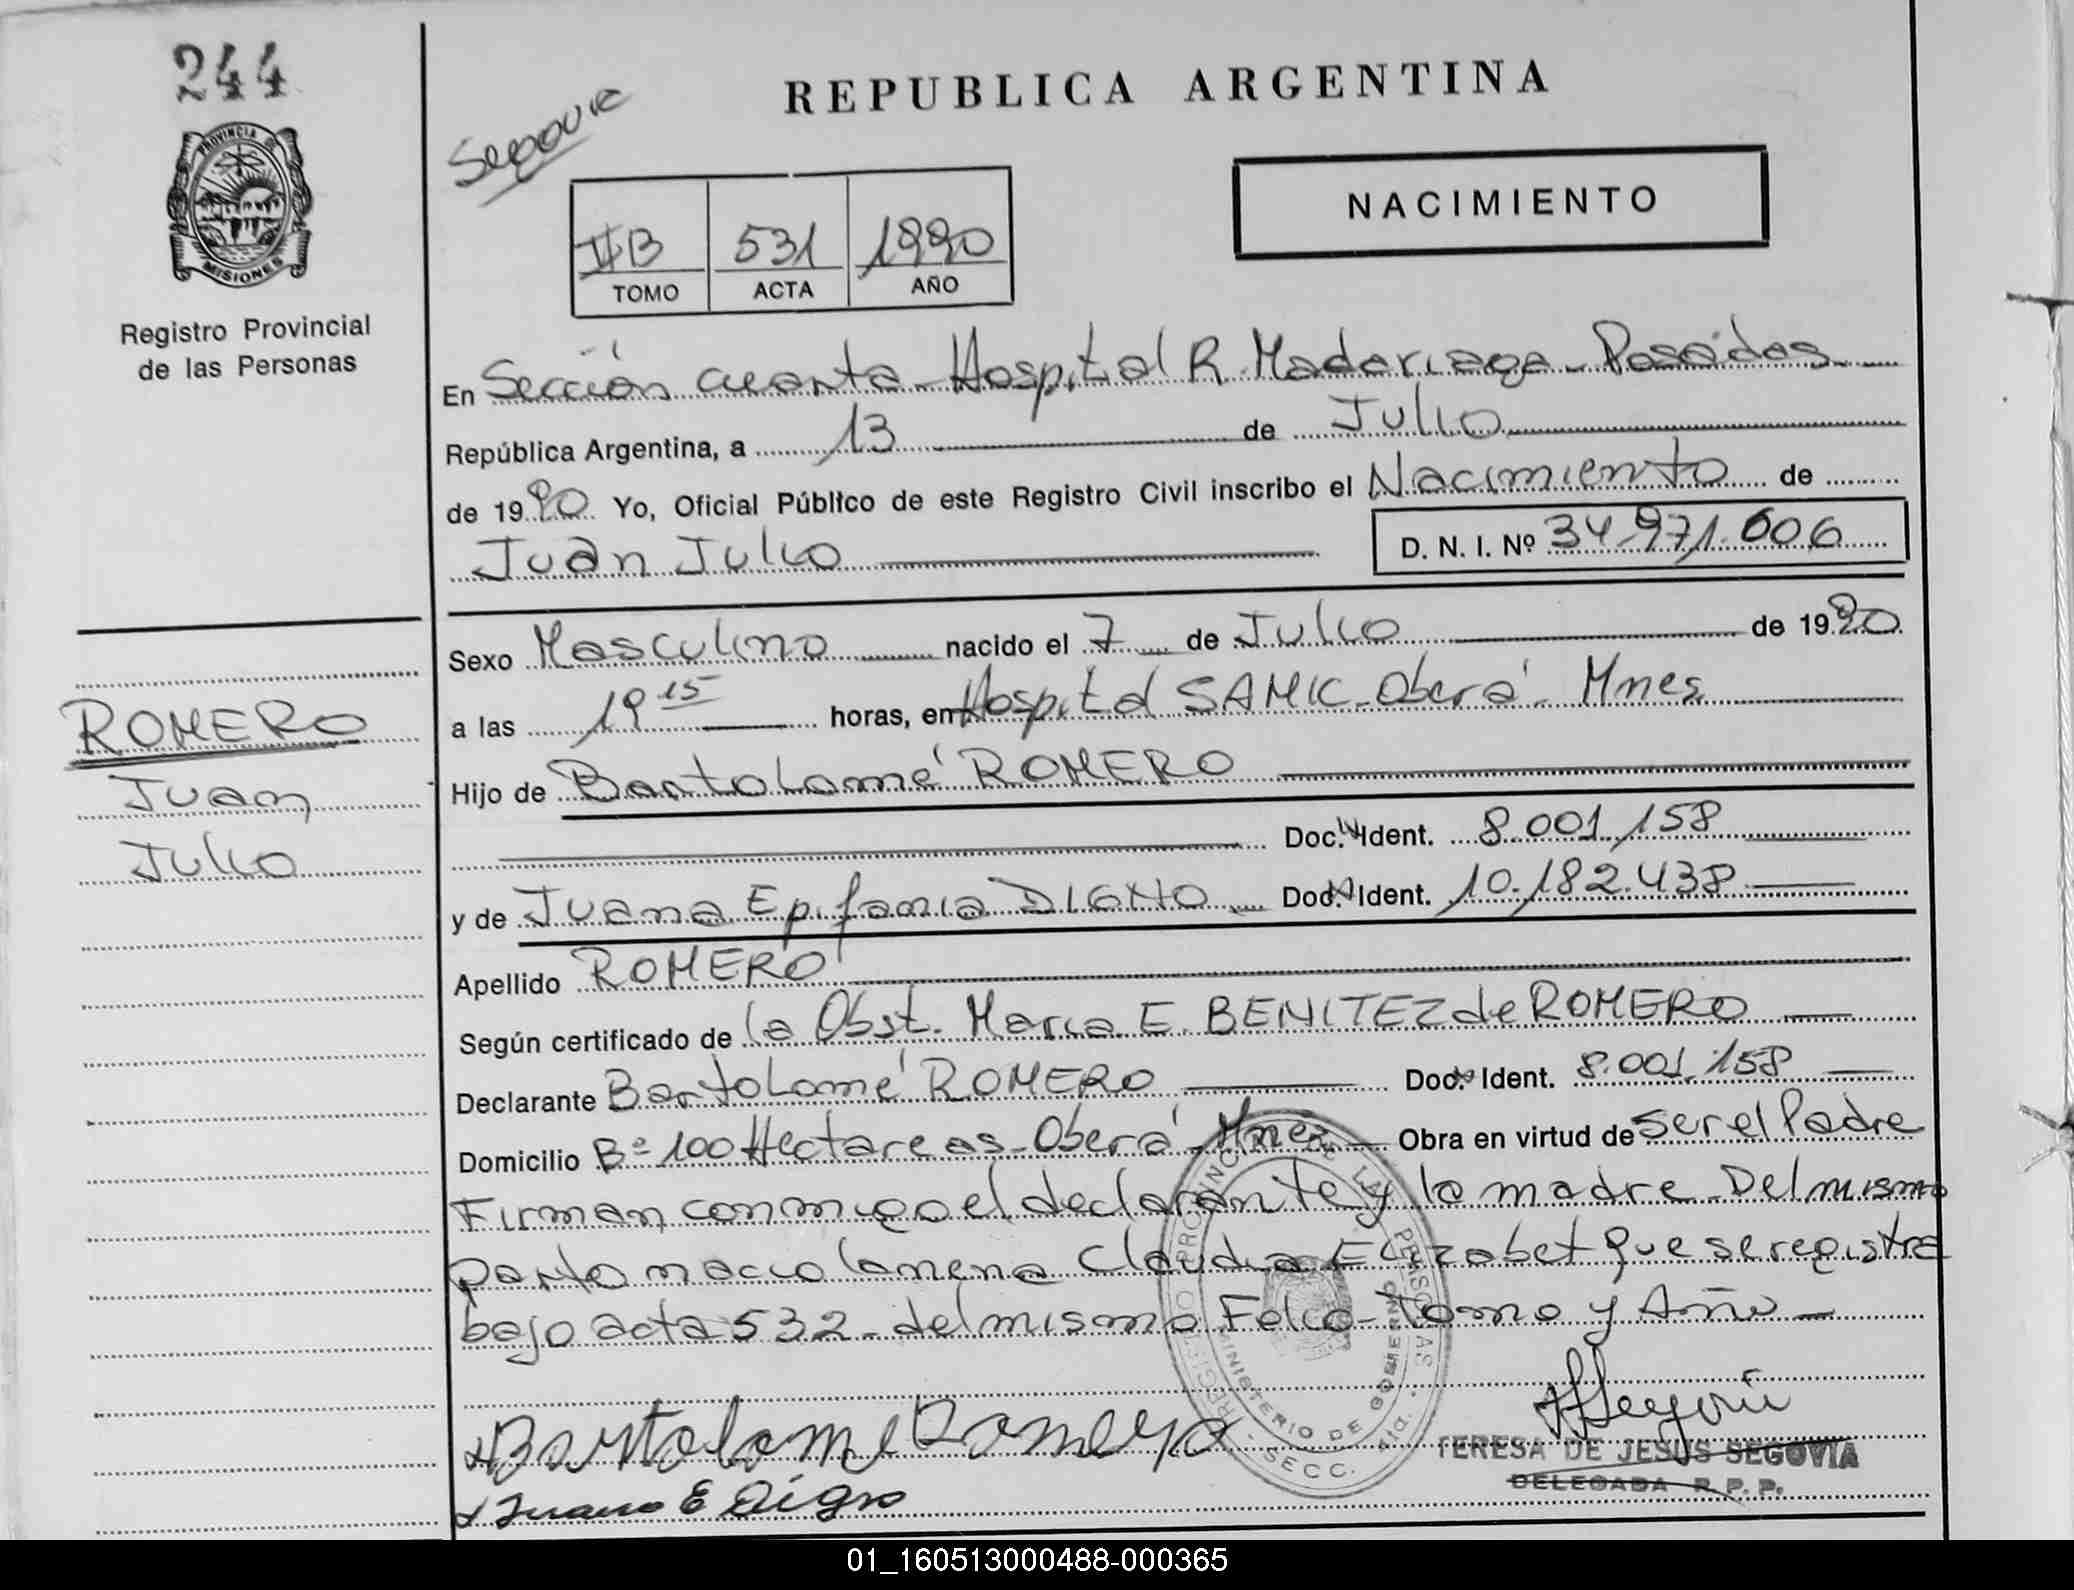 244
PROVINCIA DE
MISIONES
Registro Provincial
de las Personas
Segovia
REPUBLICA ARGENTINA
NACIMIENTO
IIB 531 1990
TOMO ACTA AÑO
En Sección cuarta - Hospital R. Madariaga - Posadas
República Argentina, a 13 de Julio
de 1990 Yo, Oficial Público de este Registro Civil inscribo el Nacimiento de
Juan Julio D. N. I. Nº 34.971.606
Sexo Masculino nacido el 7 de Julio de 1990
a las 19 15 horas, en Hospital SAMIC - Oberá - Mnes
Hijo de Bartolomé ROMERO
Doc. Ident. 8.001.158
y de Juana Epifania DIGNO Doc. Ident. 10.182.438
Apellido ROMERO
Según certificado de la Obst. Maria E. BENITEZ de ROMERO
Declarante Bartolomé ROMERO Doc. Ident. 8.001.158
Domicilio Bº 100 Hectareas - Oberá - Mnes Obra en virtud de ser el Padre
Firman conmigo el declarante y la madre - Del mismo
parto nacio la nena Claudia Elizabet que se registra
bajo acta 532 - del mismo Folio - Tomo y Año
ROMERO
Juan
Julio
REGISTRO PROVINCIAL DE LAS PERSONAS
MINISTERIO DE GOBIERNO
SECC.
Bartolome Romero
Juana E Digno
TERESA DE JESUS SEGOVIA
DELEGADA R. P. P.
01_160513000488-000365